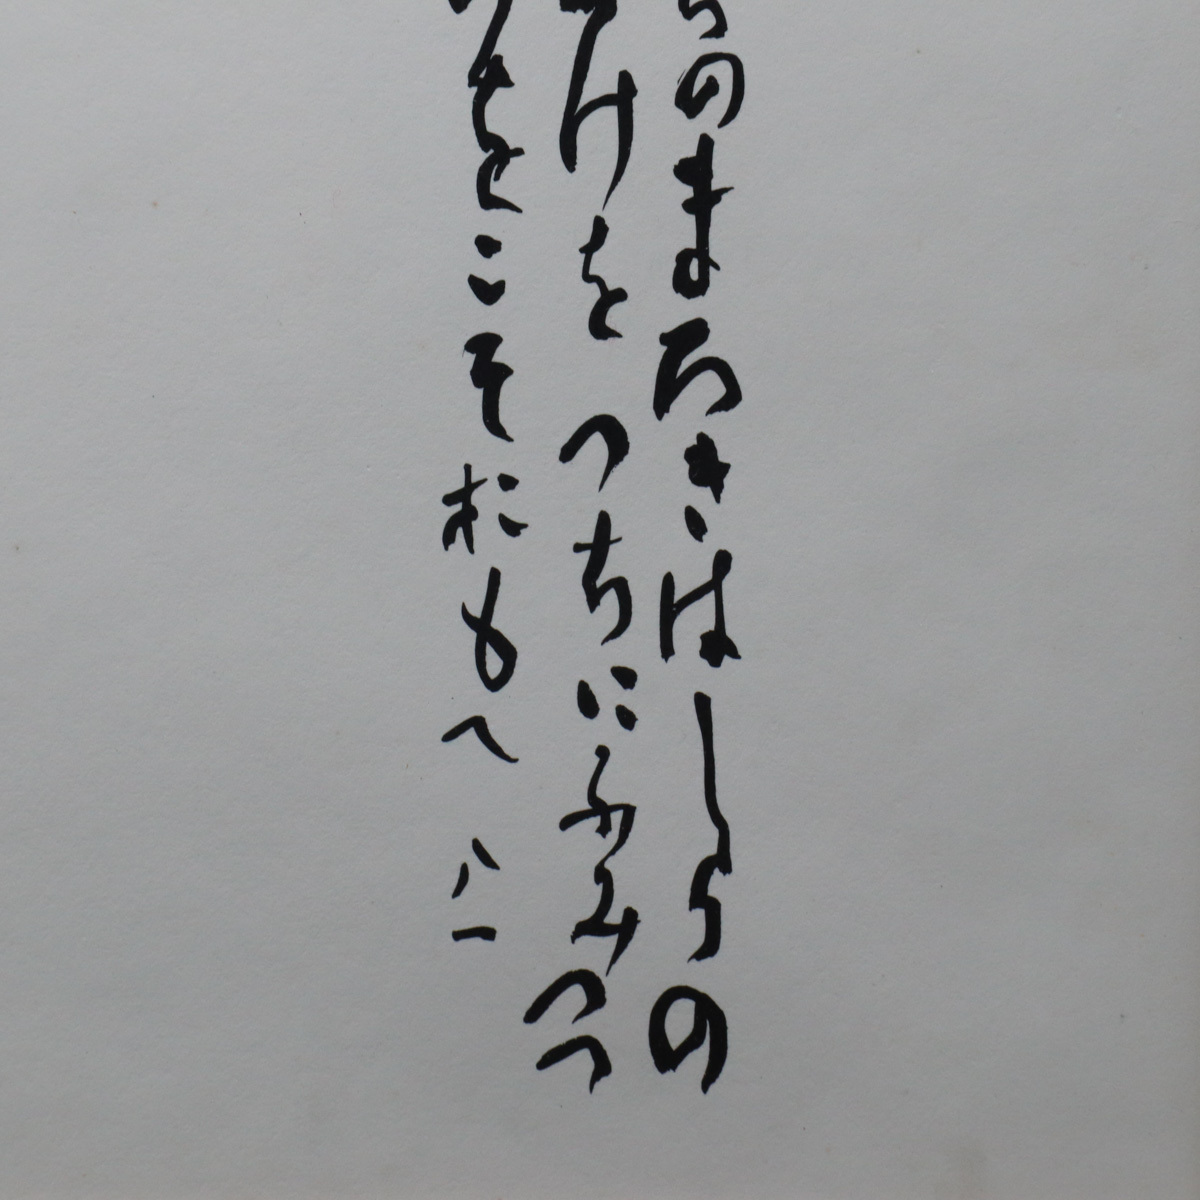 らのまろきはしらの
つきかけをつちにふみつつ
ものをこそおもへ 八一